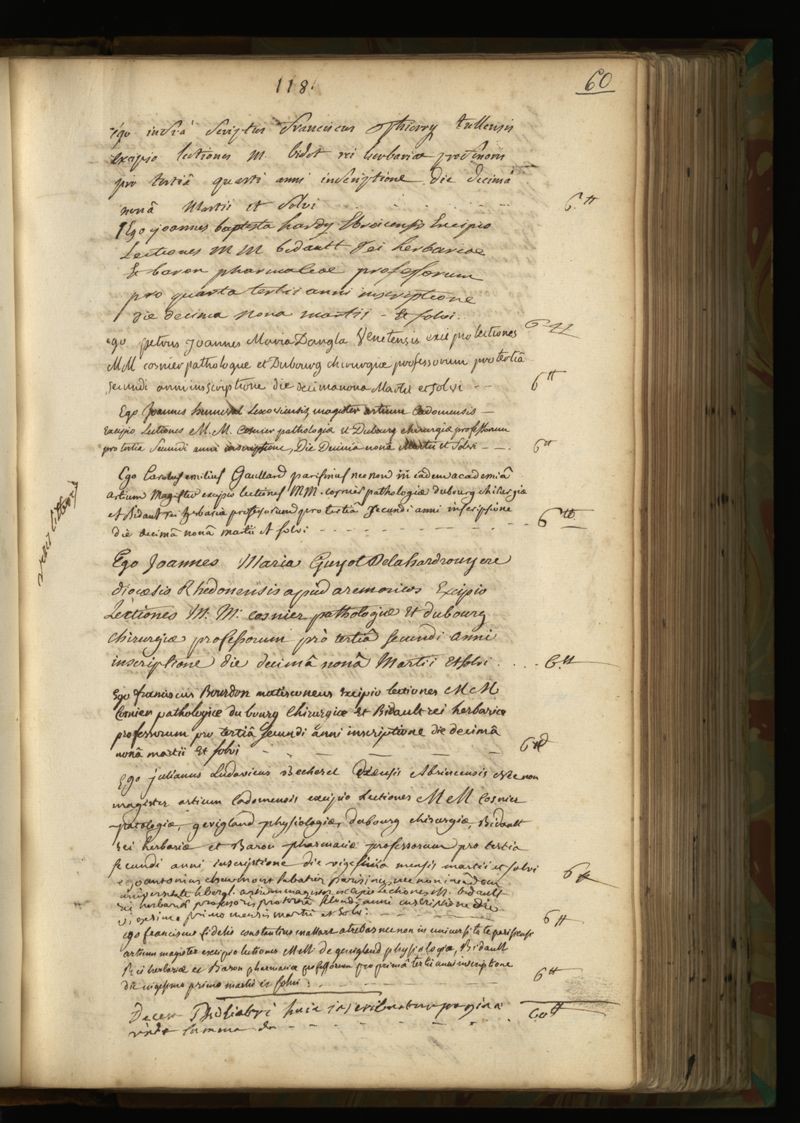 118.
60
Ego infrà scriptus Franciscus Thierry tullensis
excipio lectiones M. bidot rei herbariæ professoris
pro tertiâ quarti anni inscriptione die decimâ
nonâ Martii et solvi 6  tt
Ego joannes baptista hardy Ebroicensis Excipio
Lectiones M M bidault rei herbariæ
Et baron pharmaciæ professorum
pro quarta tertii anni inscriptione
die decima nona martii - Et solvi. 6 tt
Ego petrus joannes Maria Dangla Venetensis excipio lectiones
M M cosnier pathologiæ et Dubourg chirurgiæ professorum pro tertiâ
secundi anni inscriptione die decimanona Martii et solvi - - 6 tt
Ego Joannes Lexoviensis magister artium Cadomensis -
Excipio Lectiones M. M. Cosnier pathologiæ et Dubourg chirurgiæ professorum
pro tertia Secundi anni inscriptione, Die Decimâ nonâ Martii et Solvi - - . 6 tt
Ego Carolus emilius Gaullard parisinus nec non in eadem academiâ
artium Magister excipio lectiones MM. cosnier pathologiæ dubourg chirurgiæ
et Bidault rei herbariæ professorum pro tertiâ secundi anni inscriptione
die decimâ nonâ martii et solvi - - - - 6 tt
Ego Joannes Maria Guyot Delahardrouyere
diocesis Rhedonensis apud aremoricos Excipio
Lectiones M. M. cosnier pathologiæ Et dubourg
chirurgiæ professorum prò tertiâ secundi anni
inscriptione die decimâ nonâ Martii et solvi . . . . 6 tt
Ego franciscus Bourdon matisconeus Excipio lectiones M M
Cosnier pathologiæ dubourg Chirurgiæ Et Bidault rei herbariæ
professorum pro tertiâ secundi anni inscriptione die decimâ
nonâ martii Et solvi - - - 6 tt
Ego julianus Ludovicus Becherel Abrincensis nec non
magister artium Cadomensis excipio Lectiones M M Cosnier
patologiæ, gevigland physiologiæ, dubourg chirurgiæ, Bidault
rei herbariæ et Baron pharmaciæ professorum pro tertia
secundi anni inscriptione die vigesima mensis martii et solvi 6 tt
ego antonius parisinus nec non in eadem
universitate artium magister excipio lectiones M. bidault
rei herbariæ professoris pro tertiâ secundi anni inscriptione die
vigesimo primo mensis martii et solvi. 6 tt
ego franciscus fidelis constantinus atrebas nec non in universitate parisiensi
artium magister excipio lectiones M M de gevigland physiologiæ, Bidault
Rei herbariæ et Baron pharmaciæ professorum pro primâ tertii anni inscriptione
die vigesimo primo martii et solvi : 6 tt
Decem Philiatri hâc inscribuntur pagina
unde summa - - - - 60 tt